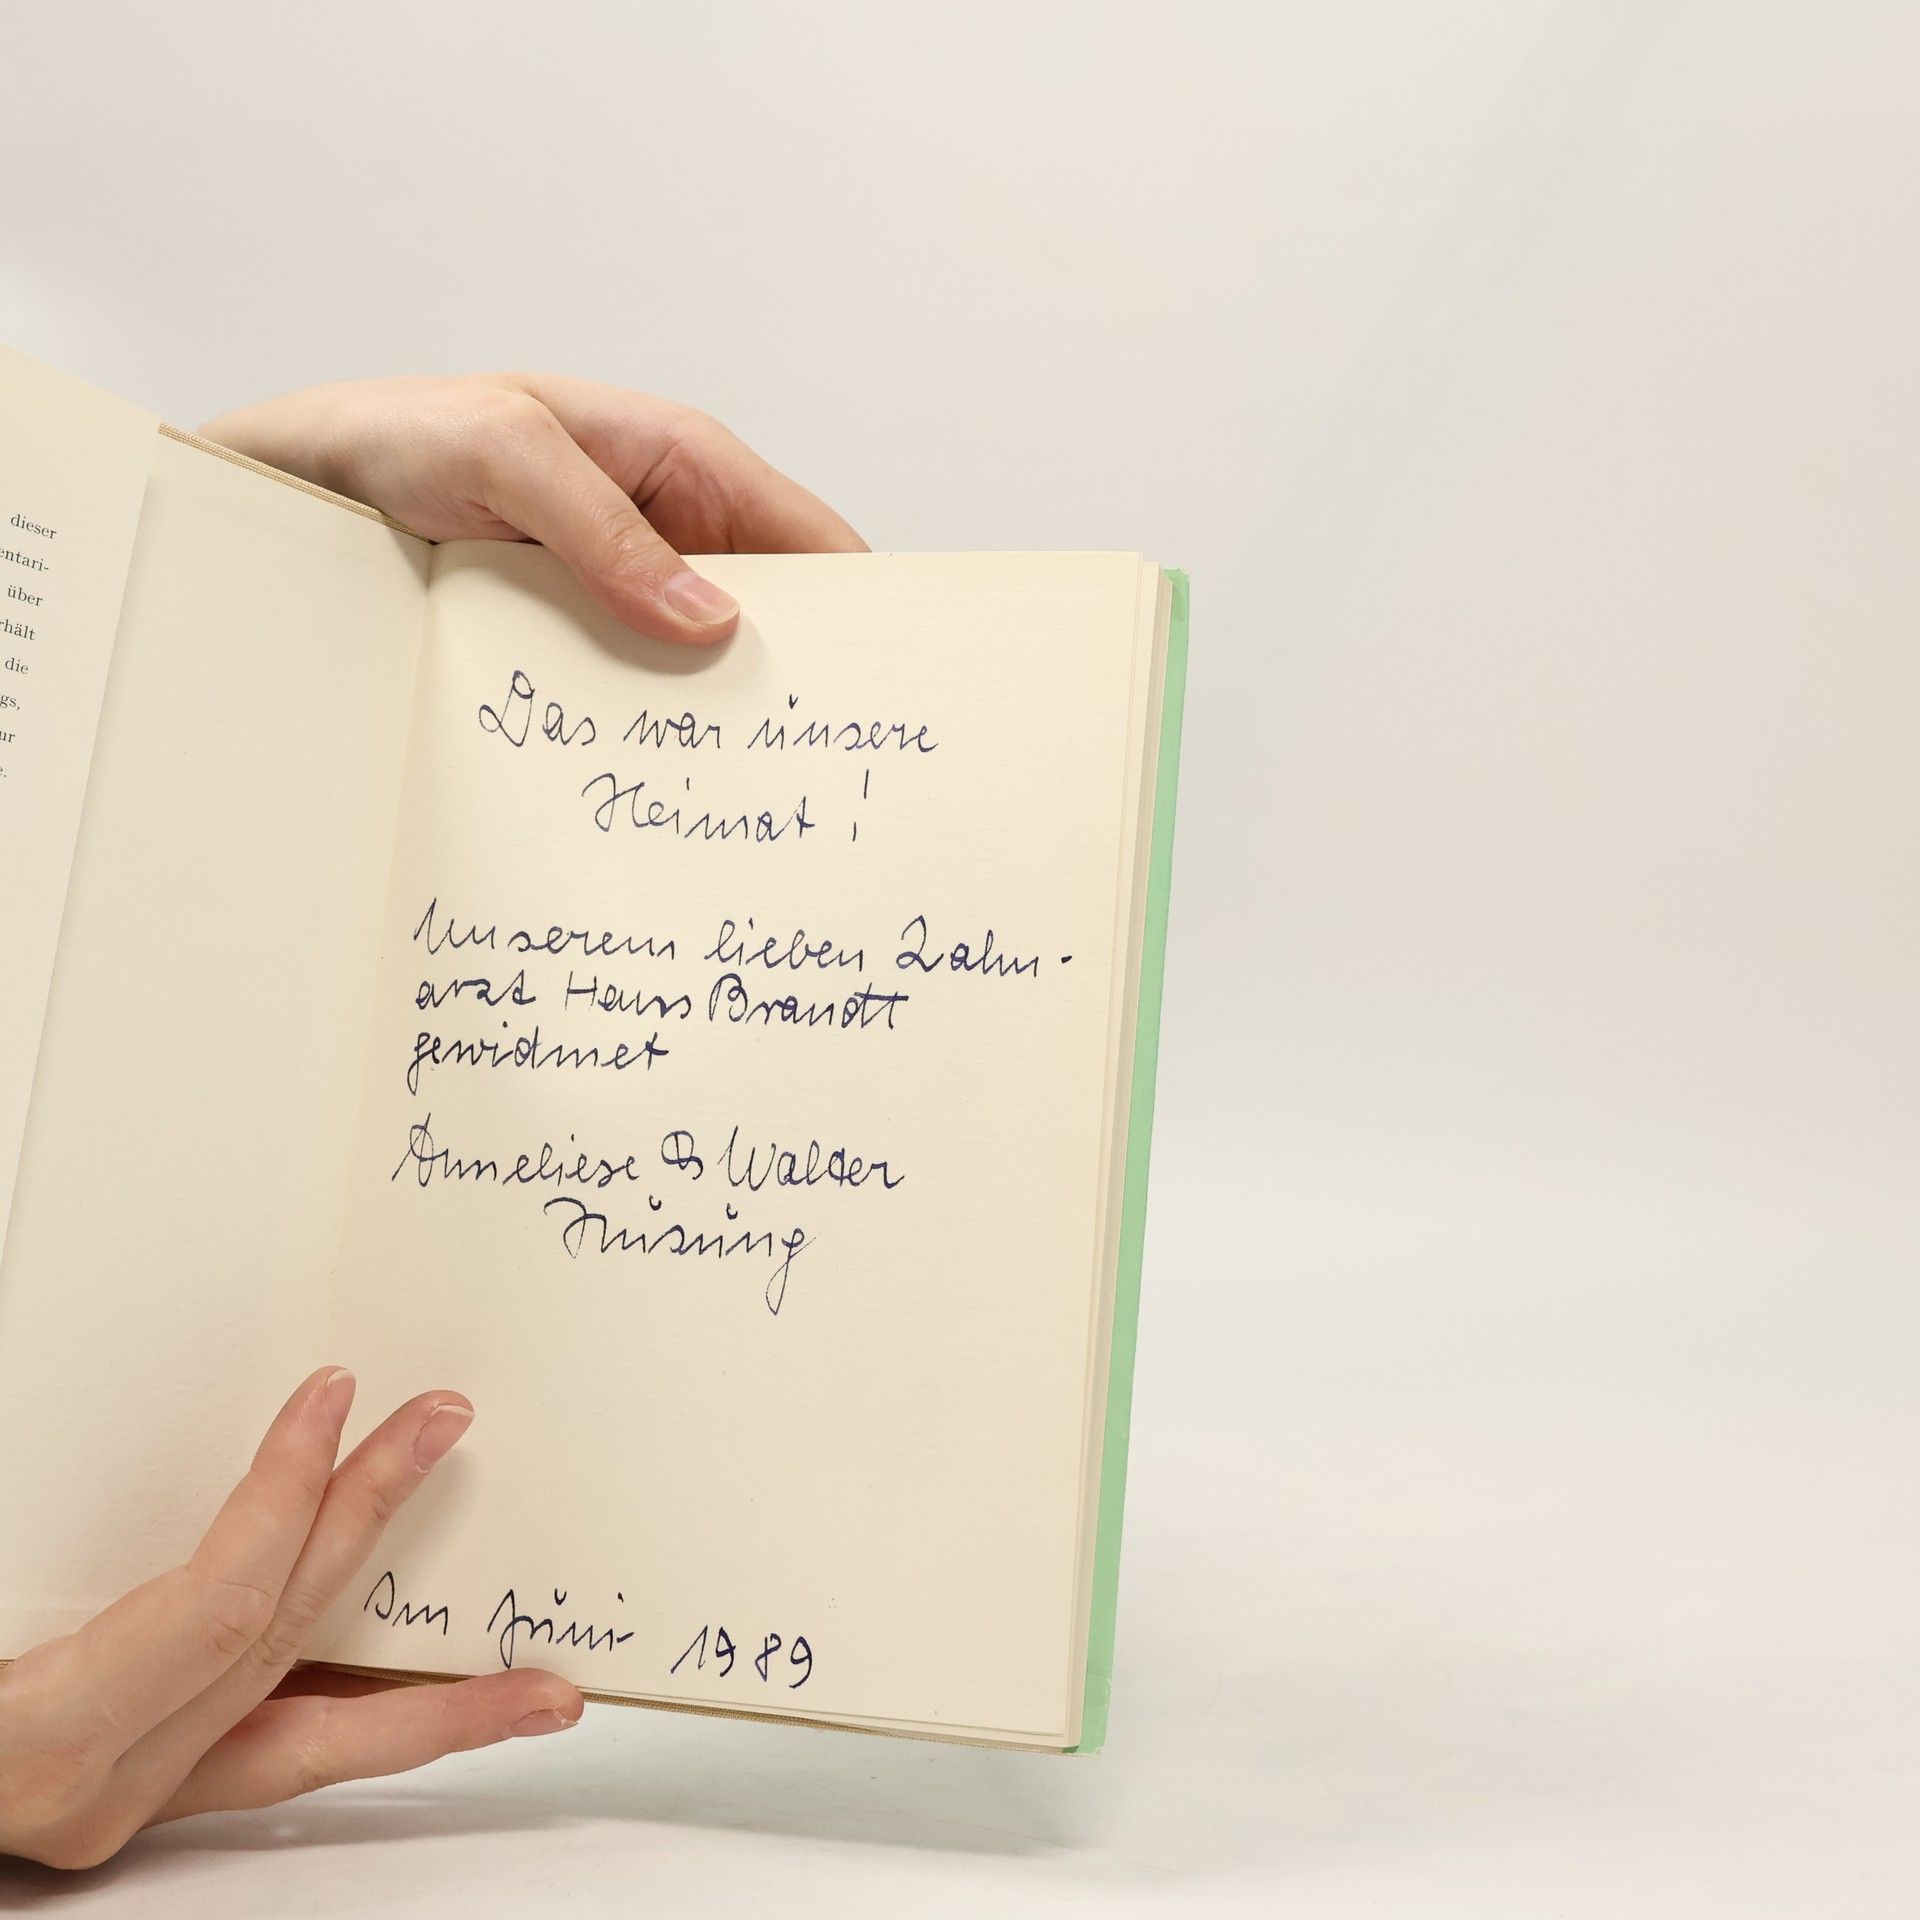 dieser
entari-
über
rhält
die
gs,
ur
e.
Das war unsere
Heimat!
Unserem lieben Zahn-
arzt Hans Brandt
gewidmet
Anneliese & Walter
Im Juni 1989